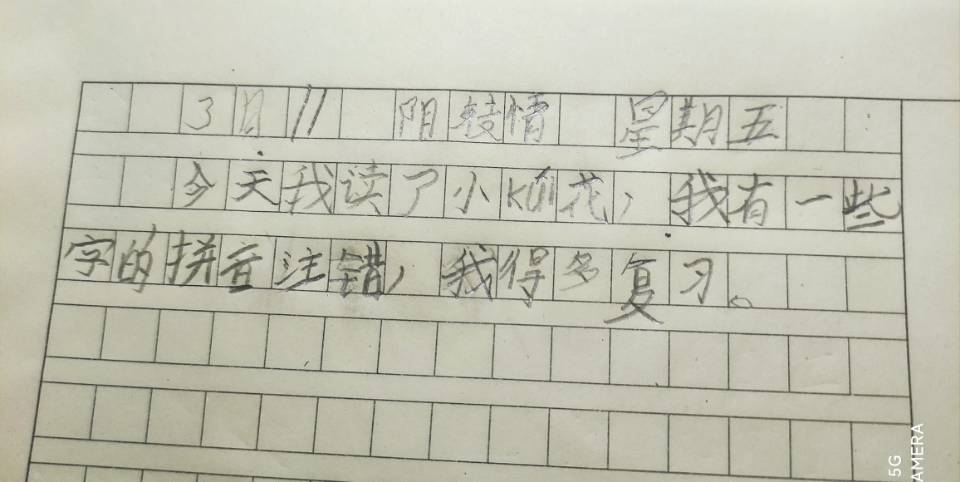 3月11 阴转情 星期五
今天我读了小kúi花，我有一些
字的拼音注错，我得多复习。
5G
AMERA